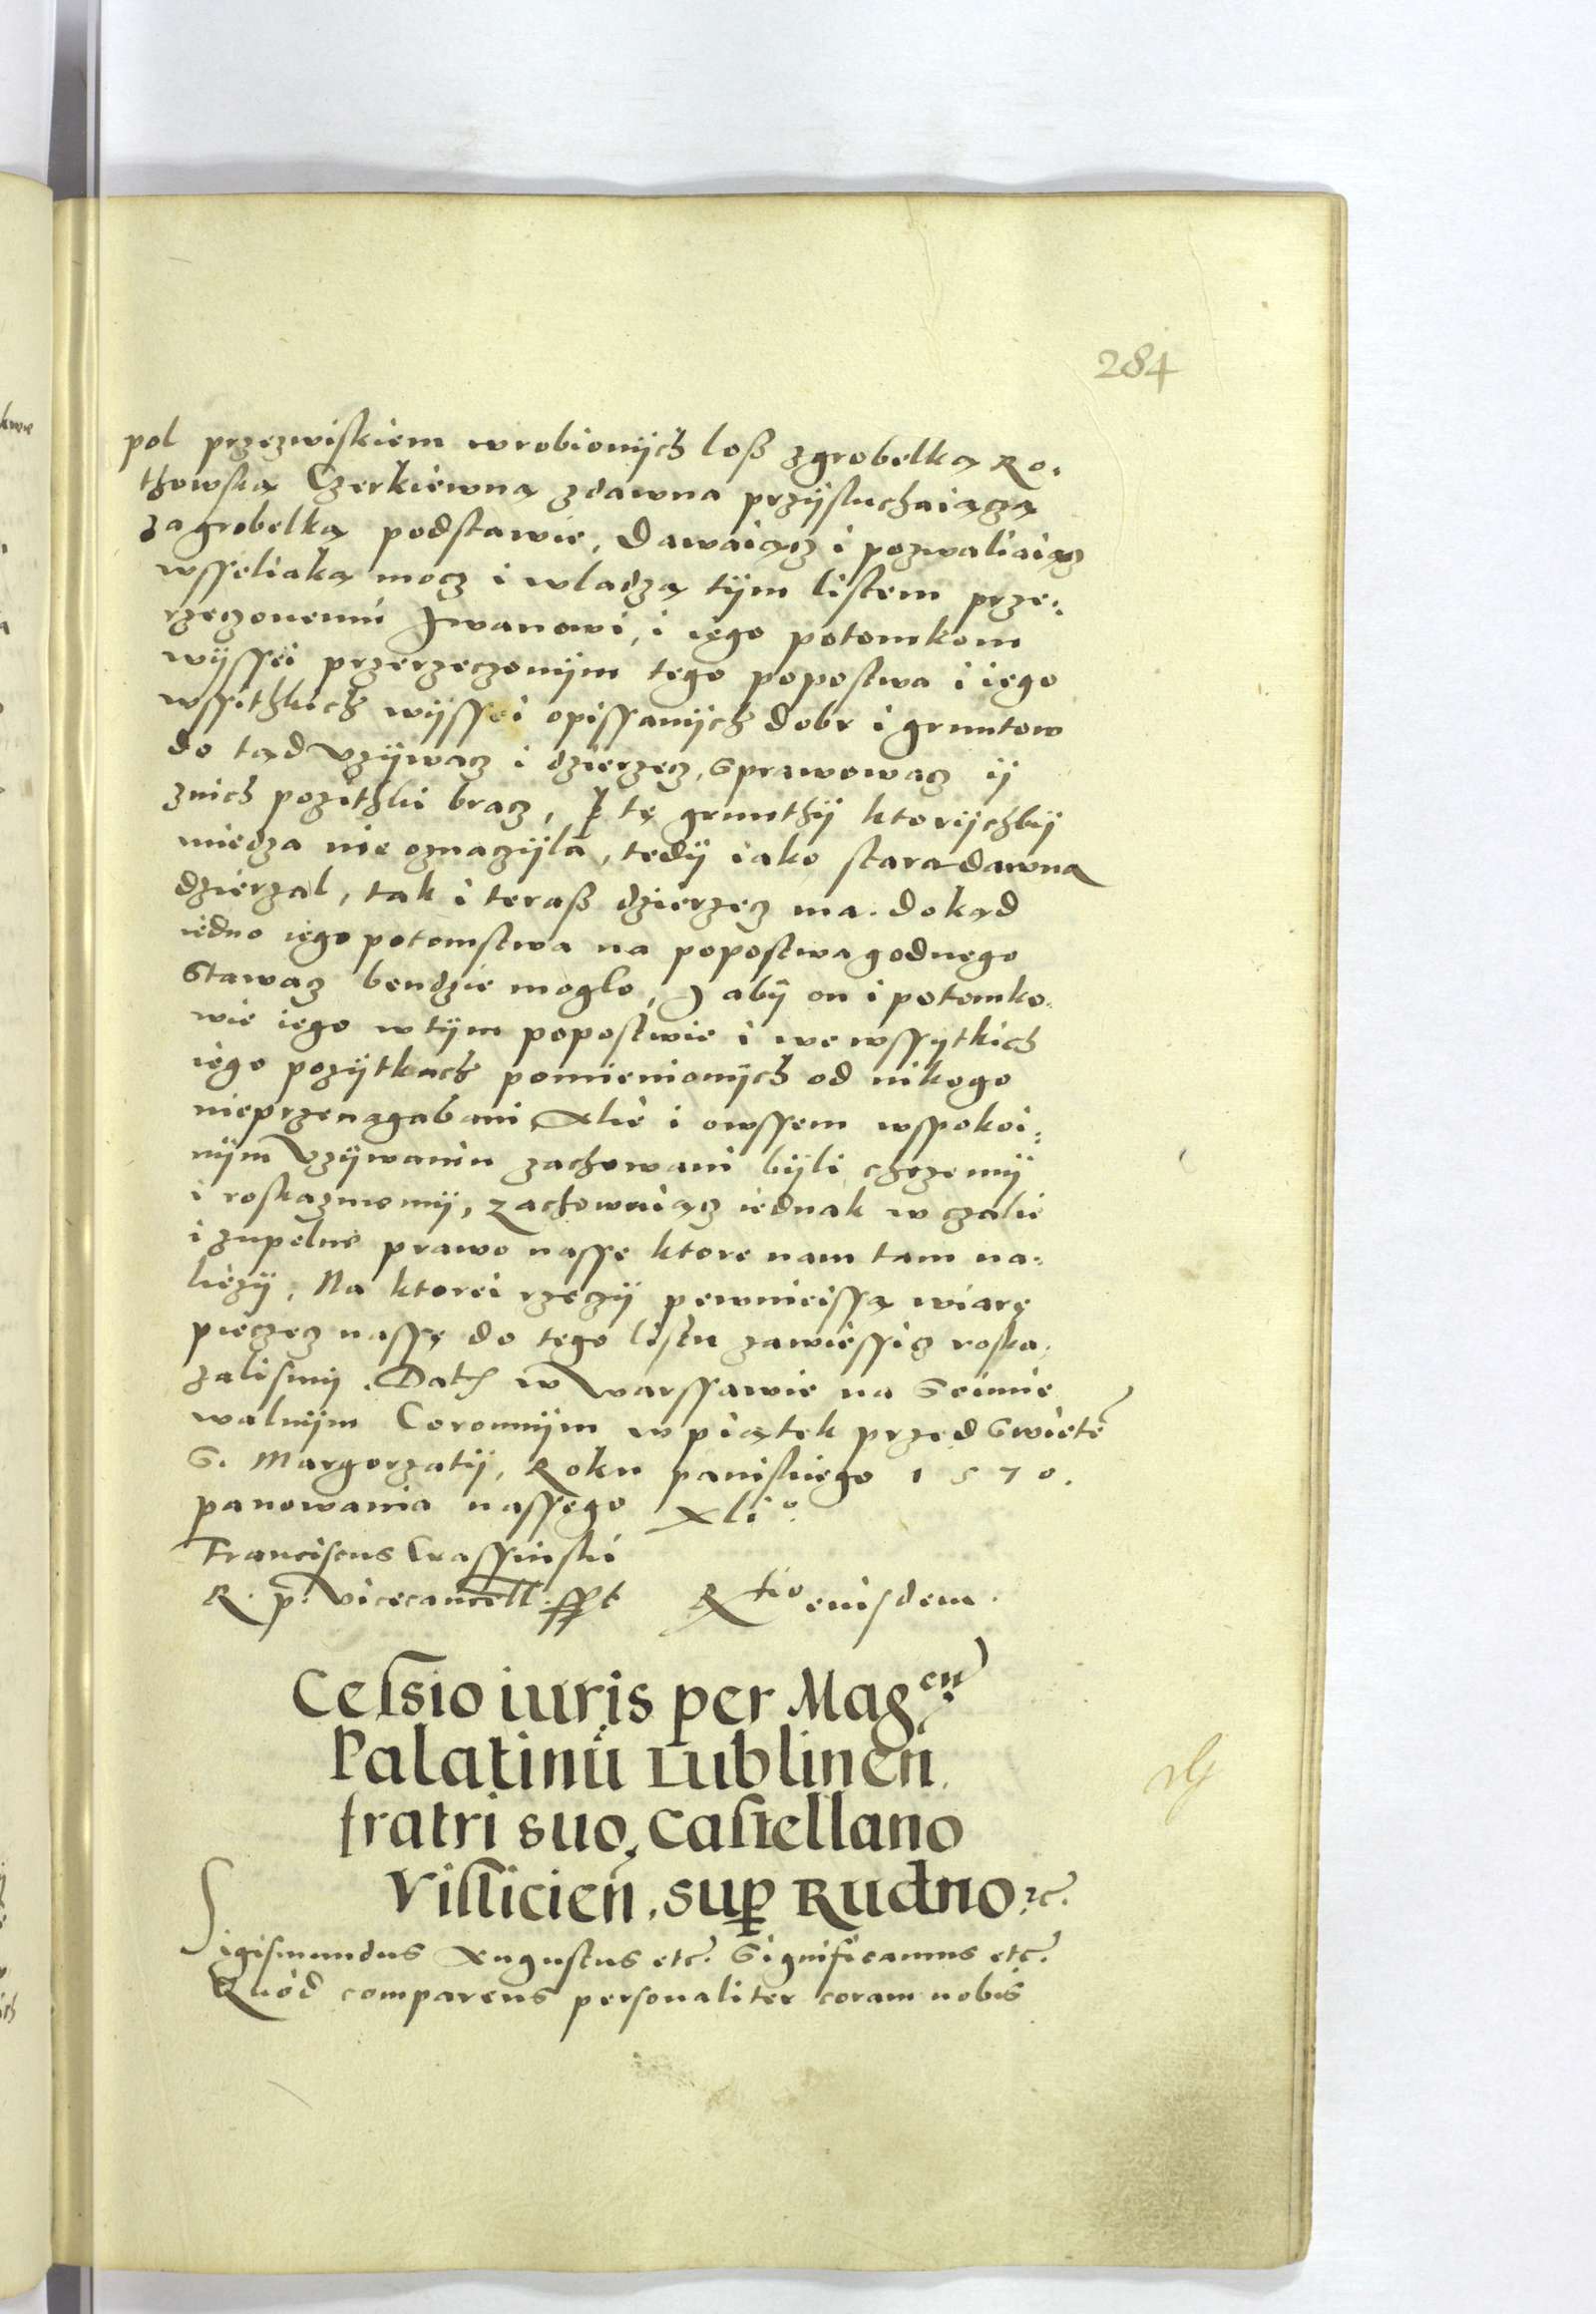 284
pol przezwiskiem wrobionÿch loß zgrobelką Ro:
thowską Czerkiewną zdawna przÿsluchaiączą
zagrobelką podstawie, Dawaiącz i pozwaliaiącz
wsseliaką mocz i wladzą tÿm listem prze:
rzeczonemu Iwanowi, i iego potomkom
wÿssei przerzeczonÿm tego popostwa i iego
wssithkich wÿssei opissanÿch dobr i gruntow
do tąd vzÿwacz i dzierzecz, sprawowacz ÿ
znich pozithki bracz, te grunthÿ ktorÿchbÿ
miedza nie oznaczÿla, tedÿ iako staradawna
dzierzal, tak i teraß dzierzecz ma. dokąd
iedno iego potomstwa na popostwa godnego
stawacz bendzie moglo, I abÿ on i potomko
wie iego w tÿm popostwie i we wssytkich
iego pozÿtkach pomienionÿch od nikogo
nieprzenagabani Alie i owssem wspokoi:
nÿm vzÿwaniu zachowani bÿli chczemÿ
i roskazuiemÿ, zachowuiącz iednak w czalie
i zupelne prawo nasse ktore nam tam na:
liezÿ, Na ktorei rzeczÿ pewnieissą wiarę
pieczęcz nassę do tego listu zawiessicz roska,
zalismÿ. Dat w Warssawie na Seimie
walnÿm Coronnÿm w piątek przed swięte
S. Margorzatÿ, Roku panskiego 1570.
panowania nassego xli°.
Franciscus Crassinski
R. p. vicecancell. sspt R<sup>tio</sup> eiusdem.
Cessio iuris per Mag<sup>cu</sup>
Palatinū Lublinen
fratri suo, Castellano
Vislicien, sup Rudno etc.
Sigismundus Augustus etc. Significamus etc.
Quod comparens personaliter coram nobis